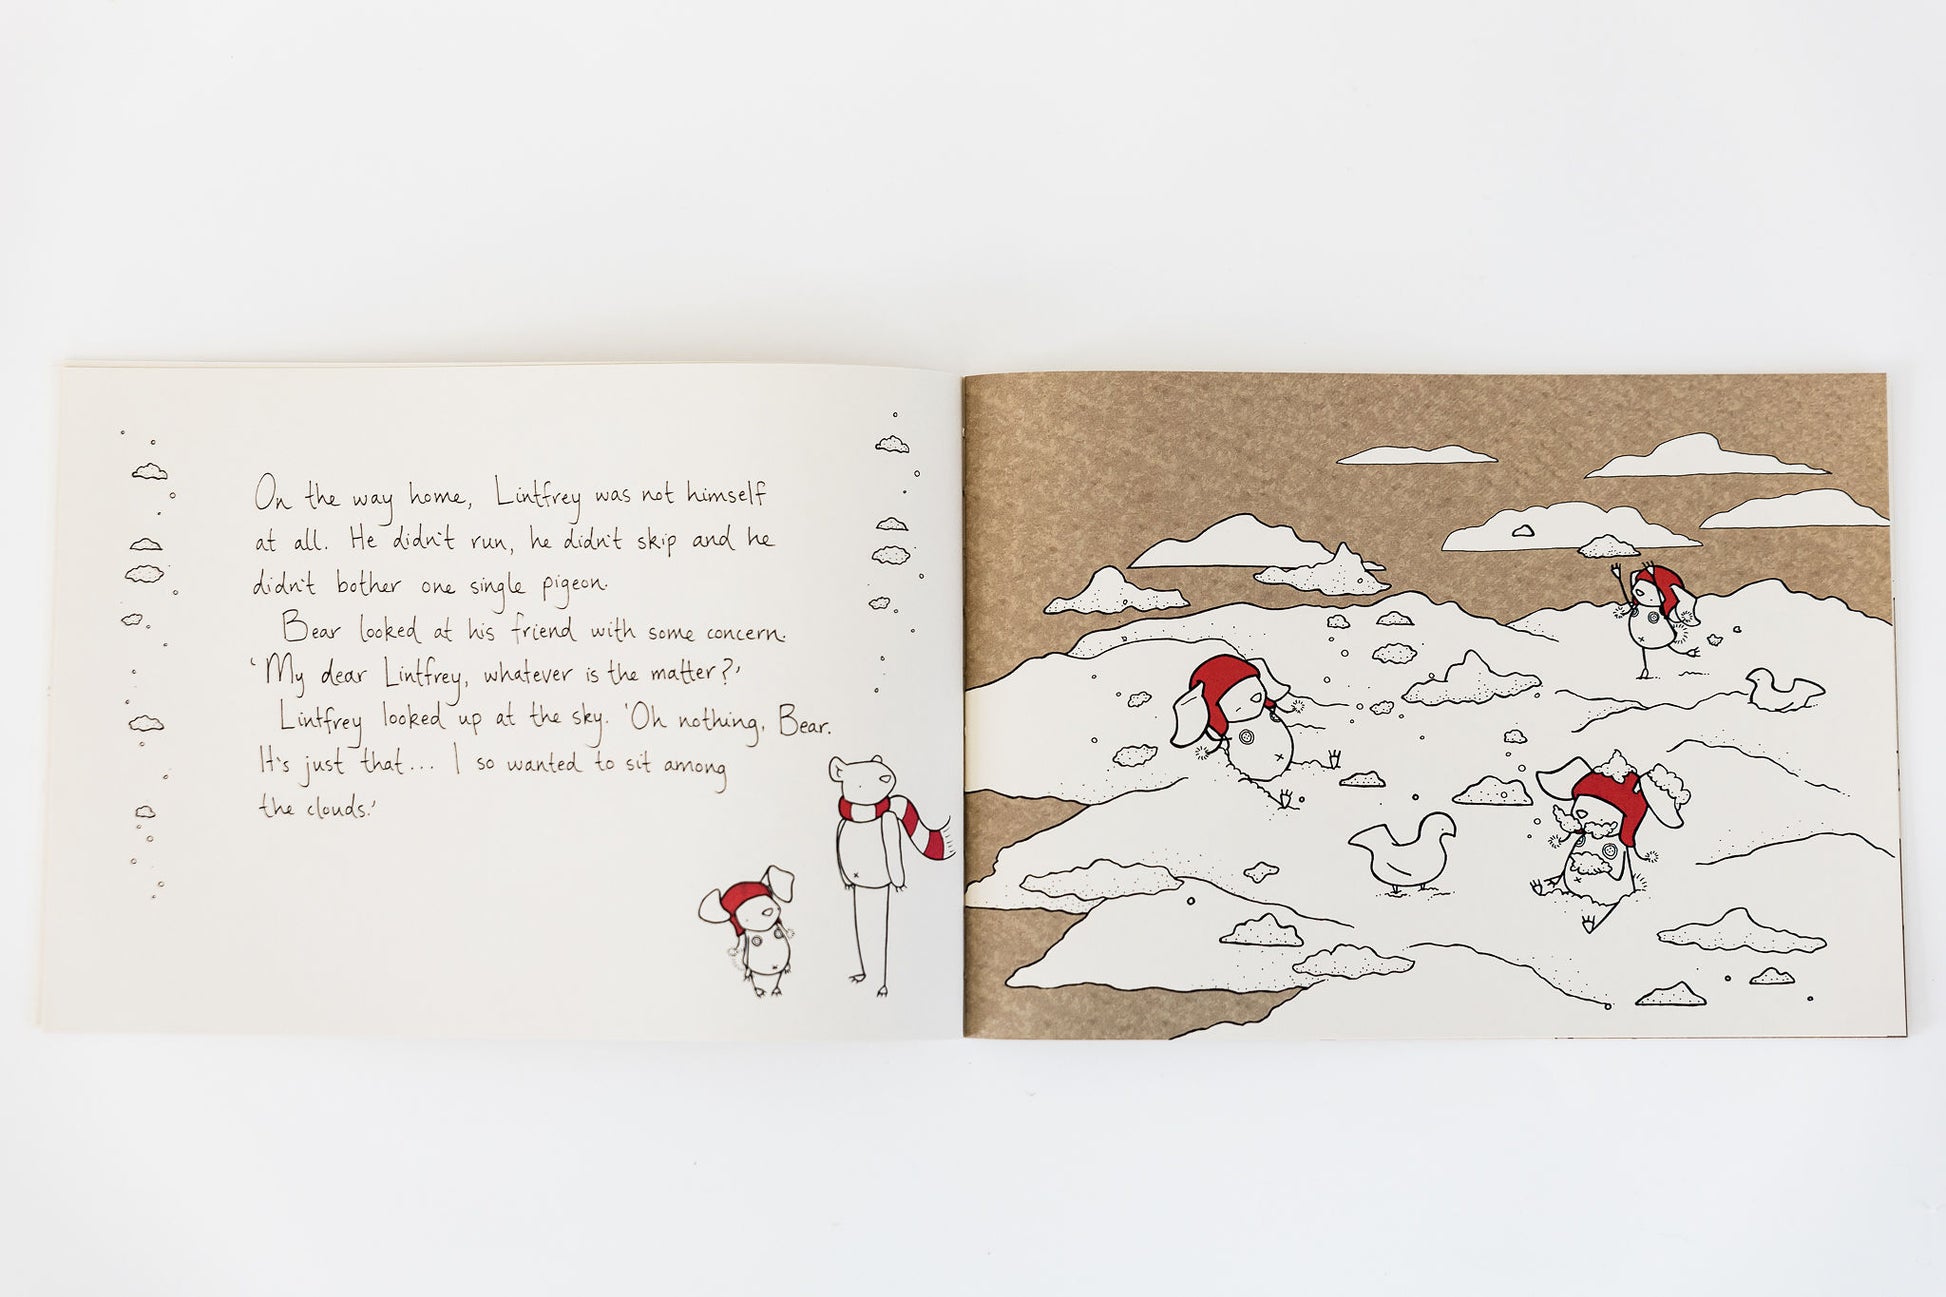 On the way home, Lintfrey was not himself
at all. He didn't run, he didn't skip and he
didn't bother one single pigeon.
Bear looked at his friend with some concern.
'My dear Lintfrey, whatever is the matter?'
Lintfrey looked up at the sky. 'Oh nothing, Bear.
It's just that... I so wanted to sit among
the clouds.'